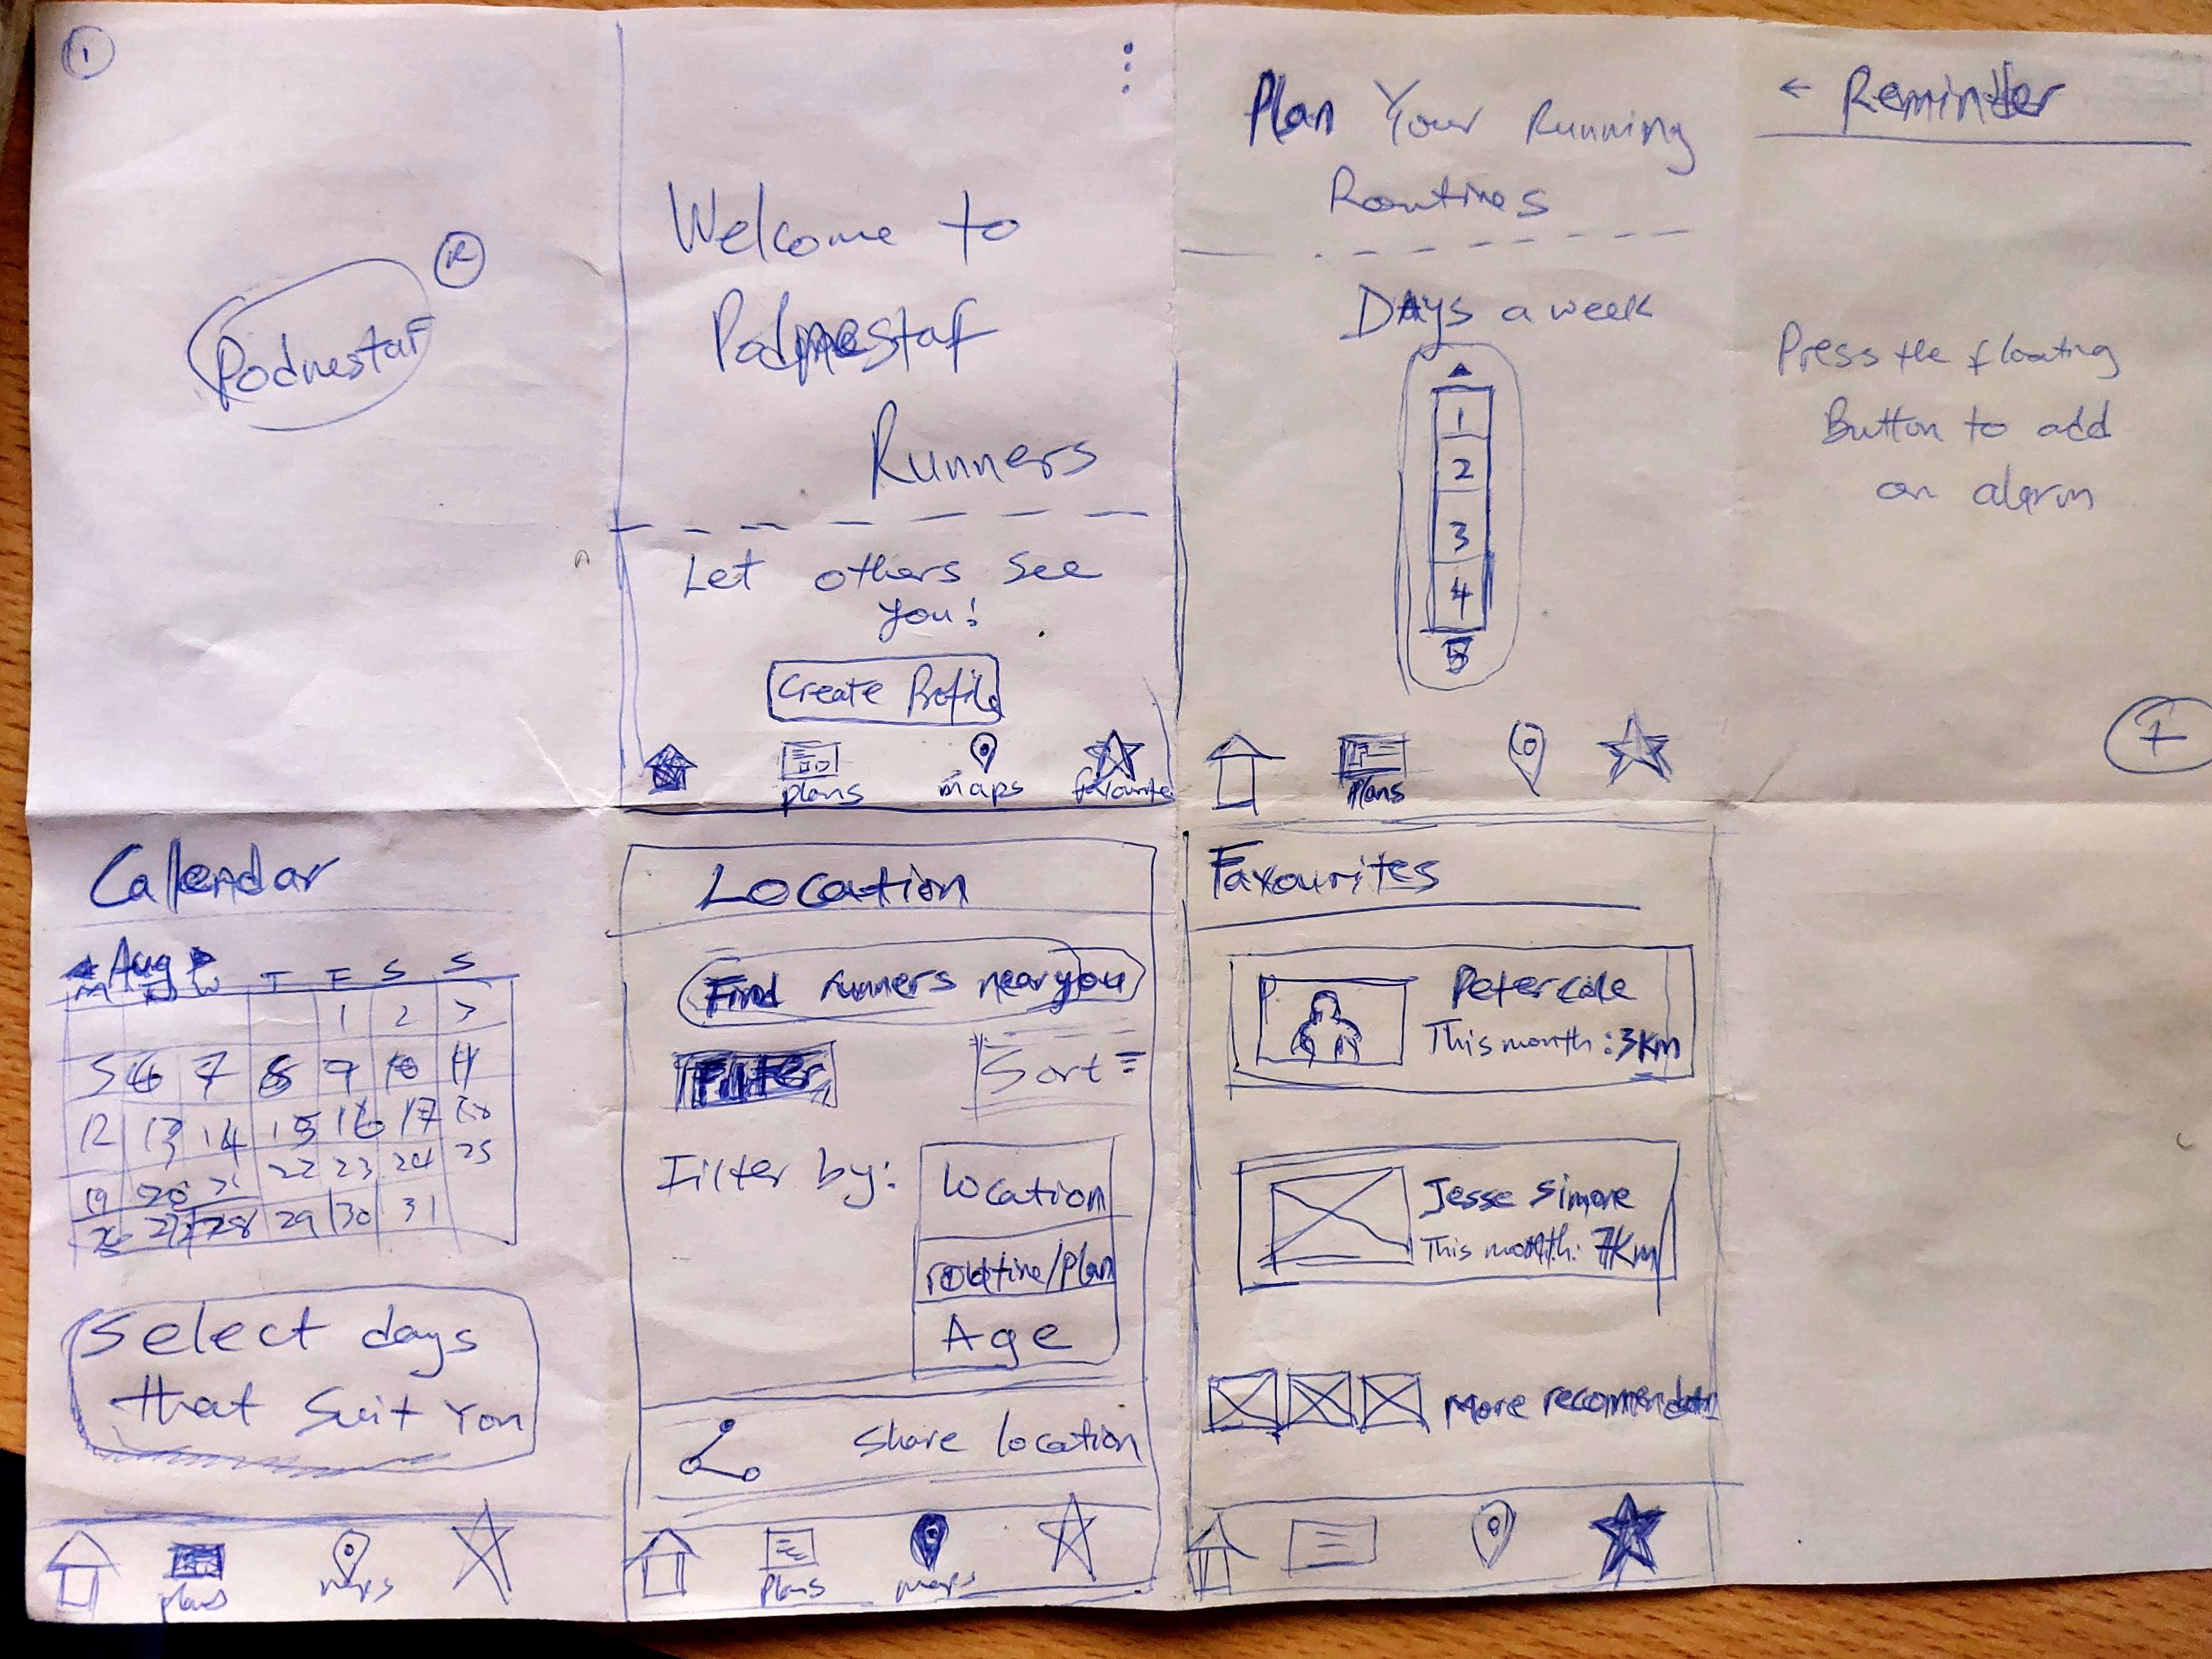 1
R
Podnestaf
Welcome to
Podnestaf
Runners
Let others see
you!
Create Profile
plans
maps
favourite
Plan Your Running
Routines
Days a week
1
2
3
4
5
plans
← Reminder
Press the floating
Button to add
an alarm
+
Calendar
Aug
M T W T F S S
1 2 3
5 6 7 8 9 10 11
12 13 14 15 16 17 18
19 20 21 22 23 24 25
26 27 28 29 30 31
Select days
that suit You
plans
maps
Location
Find runners near you
Filter
Sort
Filter by:
location
routine/plan
Age
share location
plans
maps
Favourites
Peter cole
This month: 3km
Jesse Simone
This month: 7Km
More